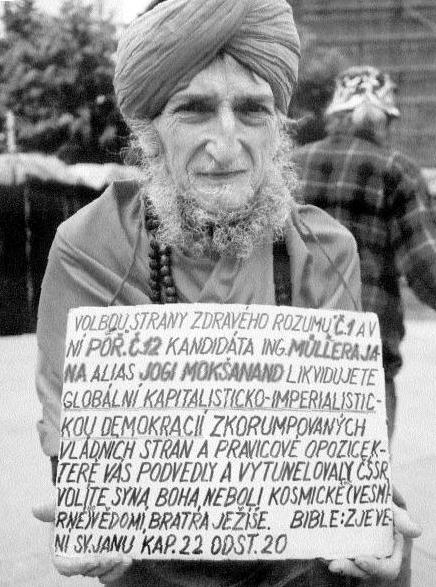 VOLBOU STRANY ZDRAVÉHO ROZUMU Č.1 A V
NÍ POŘ.Č.12 KANDIDÁTA ING.MŰLLERA JA-
NA ALIAS JOGI MOKŠANAND LIKVIDUJETE
GLOBÁLNÍ KAPITALISTICKO-IMPERIALISTIC-
KOU DEMOKRACII ZKORUMPOVANÝCH
VLÁDNÍCH STRAN A PRAVICOVÉ OPOZICE K-
TERÉ VÁS PODVEDLY A VYTUNELOVALY ČSSR
VOLÍTE SYNA BOHA NEBOLI KOSMICKÉ (VESMÍ-
RNÉ) VĚDOMÍ, BRATRA JEŽÍŠE. BIBLE: ZJEVE-
NÍ SV.JANU KAP.22 ODST.20